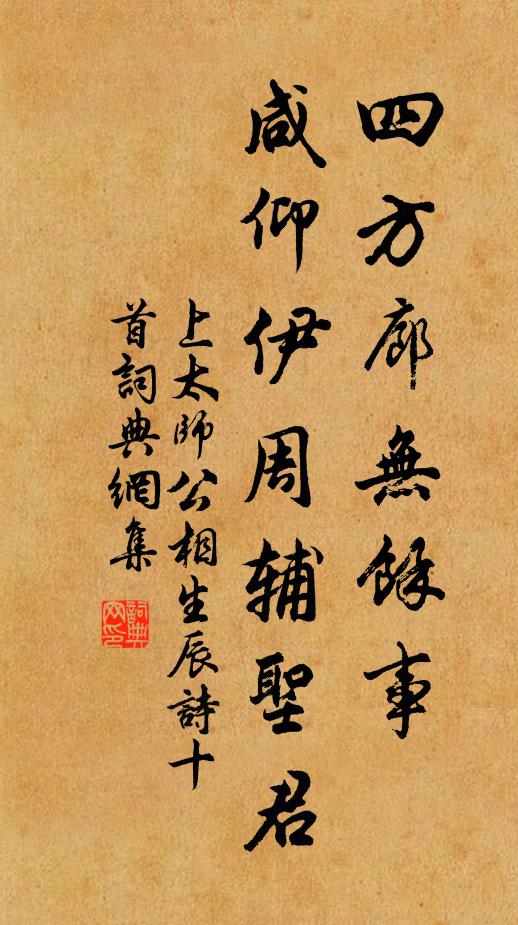 四方廊無餘事
咸仰伊周辅聖君
上太師公相生辰詩十
首詞典網集
詞典网印